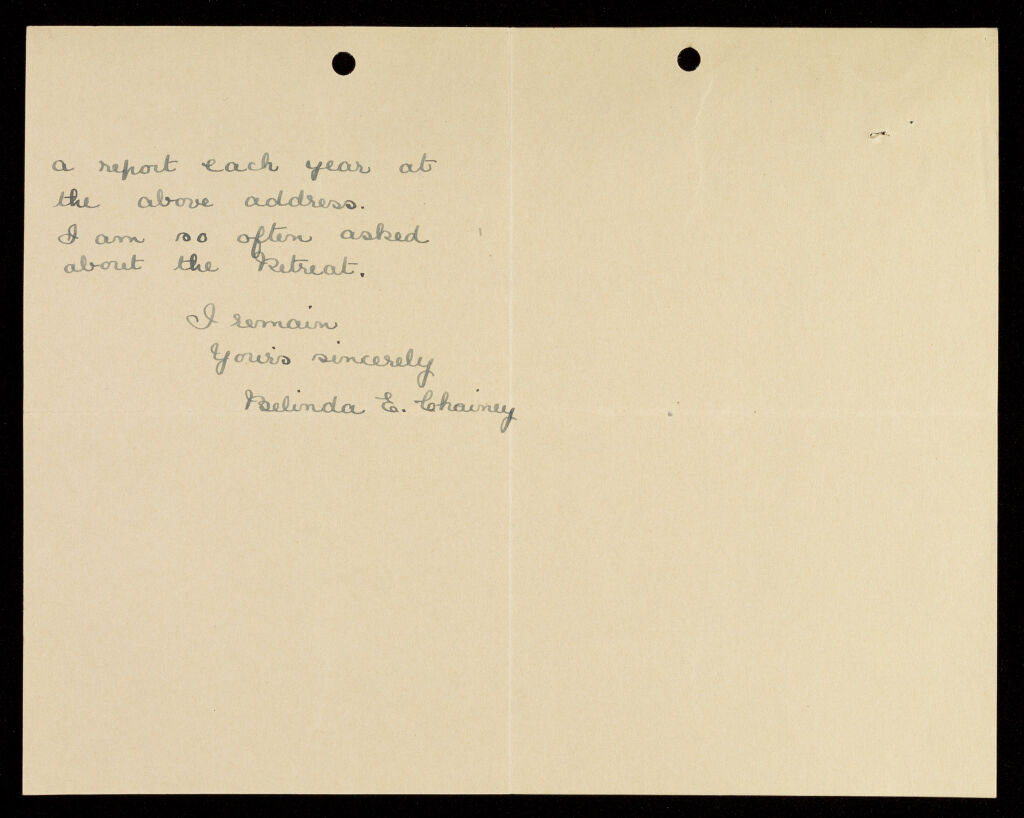 a report each year at
the above address.
I am so often asked
about the Retreat.
I remain
Yours sincerely
Belinda E. Chainey